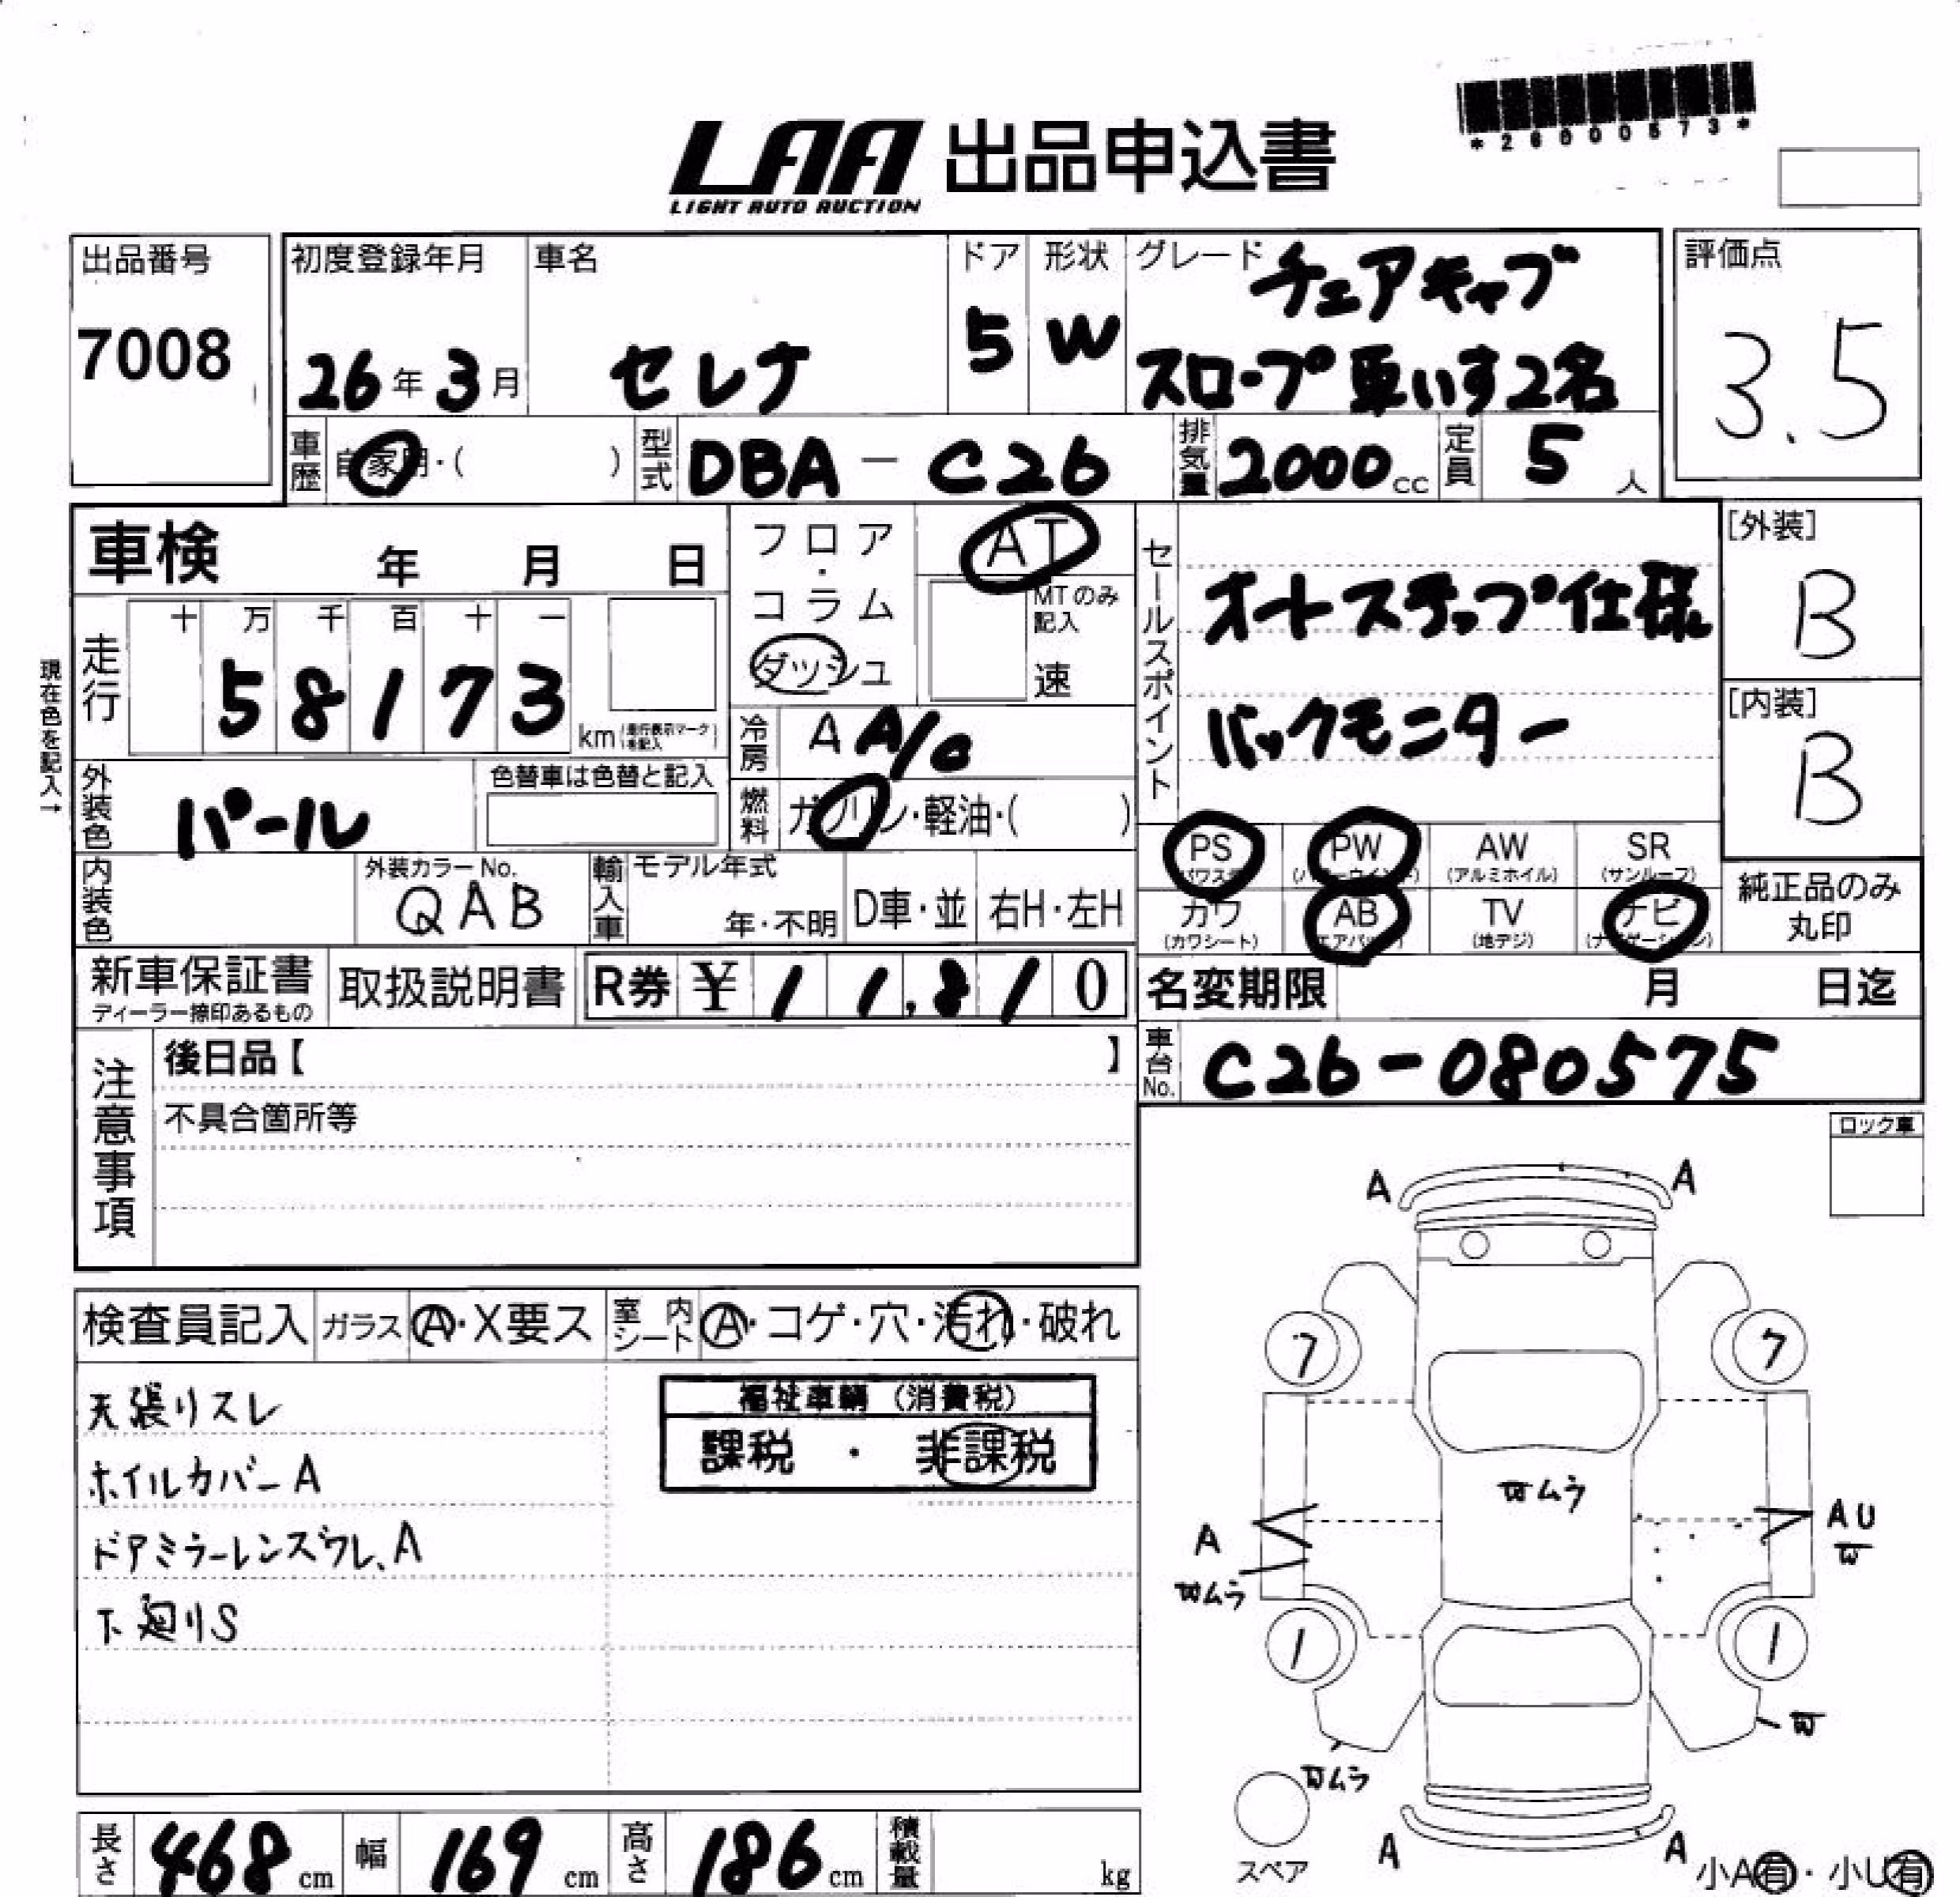 *26000573*
LAA 出品申込書
LIGHT AUTO AUCTION
出品番号
7008
初度登録年月
26年3月
車名
セレナ
ドア
5
形状
W
グレード
チェアキャブ
スロープ 車いす2名
評価点
3.5
車歴
自家用・( )
型式
DBA-C26
排気量
2000cc
定員
5人
車検 年 月 日
フロア
・
コラム
ダッシュ
AT
MTのみ
記入
速
セールスポイント
オートステップ仕様
バックモニター
[外装]
B
[内装]
B
現在色を記入→
走行
十 万 千 百 十 一
5 8 1 7 3
km
冷房
A A/C
外装色
パール
色替車は色替と記入
燃料
ガソリン・軽油・( )
PS
PW
(パワーウインド)
AW
(アルミホイル)
SR
(サンルーフ)
カワ
(カワシート)
AB
(エアバッグ)
TV
(地デジ)
ナビ
(ナビゲーション)
純正品のみ
丸印
内装色
外装カラーNo.
QAB
輸入車
モデル年式
年・不明
D車・並
右H・左H
新車保証書
ディーラー捺印あるもの
取扱説明書
R券 ¥ 1 1,8 1 0
名変期限 月 日迄
車台No.
C26-080575
注意事項
後日品【 】
不具合箇所等
ロック車
検査員記入
ガラス
A・X要ス
室内シート
A・コゲ・穴・汚れ・破れ
天張リスレ
ホイルカバーA
ドアミラーレンズワレ、A
下廻リS
福祉車輌(消費税)
課税 ・ 非課税
A
A
7
7
Wムラ
A
Wムラ
AU
W
1
1
W
Wムラ
スペア
A
A
小A有・小U有
長さ
468cm
幅
169cm
高さ
186cm
積載量
kg